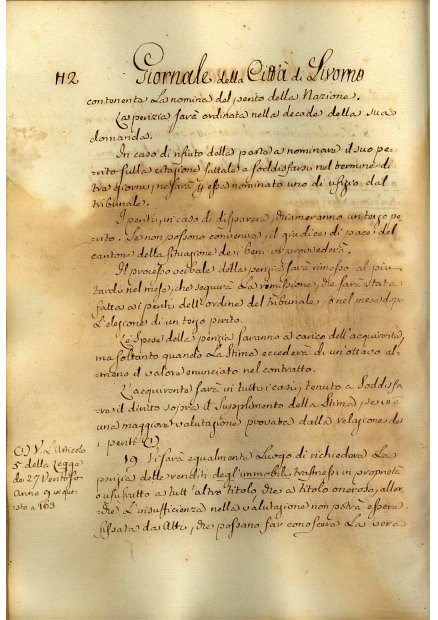 112
Giornale della Città di Livorno
contenente La nomina del perito della Nazione.
La perizia sarà ordinata nella decade della sua
domanda.
In caso di rifiuto della parte a nominare il suo pe
rito sulla citazione fattale a soddisfarsi nel termine di
tre giorni, ne sarà p esso nominato uno di ufizio dal
tribunale.
I periti, in caso di disparere, chiameranno un terzo pe
rito. Se non possono convenirsi, il giudice di pace del
cantone della situazione de i beni vi provvederà.
Il processo verbale della perizia sarà rimesso al più
tardi nel mese, che seguirà La remissione, che sarà stata
fatta a i periti dell'ordine del tribunale, o nel mese dopo
L'elezione di un terzo perito.
Le Spese della perizia saranno a carico dell'acquirente,
ma soltanto quando La Stima eccederà di un'ottavo al-
meno il valore enunciato nel contratto.
L'acquirente sarà in tutti i casi, tenuto a Soddisfa
re il diritto sopra il Supplimento della Stima, se vi è
una maggiore valutazione provata dalla relazione de
i periti (1)
19 Vi sarà egualmente Luogo di richiedere La
perizia delle rendite degl'immobili trasmessi in proprietà
o usufrutto a tutt'altro titolo, che a titolo oneroso, allor
che L'insufficienza nella valutazione non potrà essere
fissata da Atti, che possano far conoscere La vera
(1) V. L'Articolo
5 della Legge
de 27 Ventoso
Anno 9 in que
sto a 163